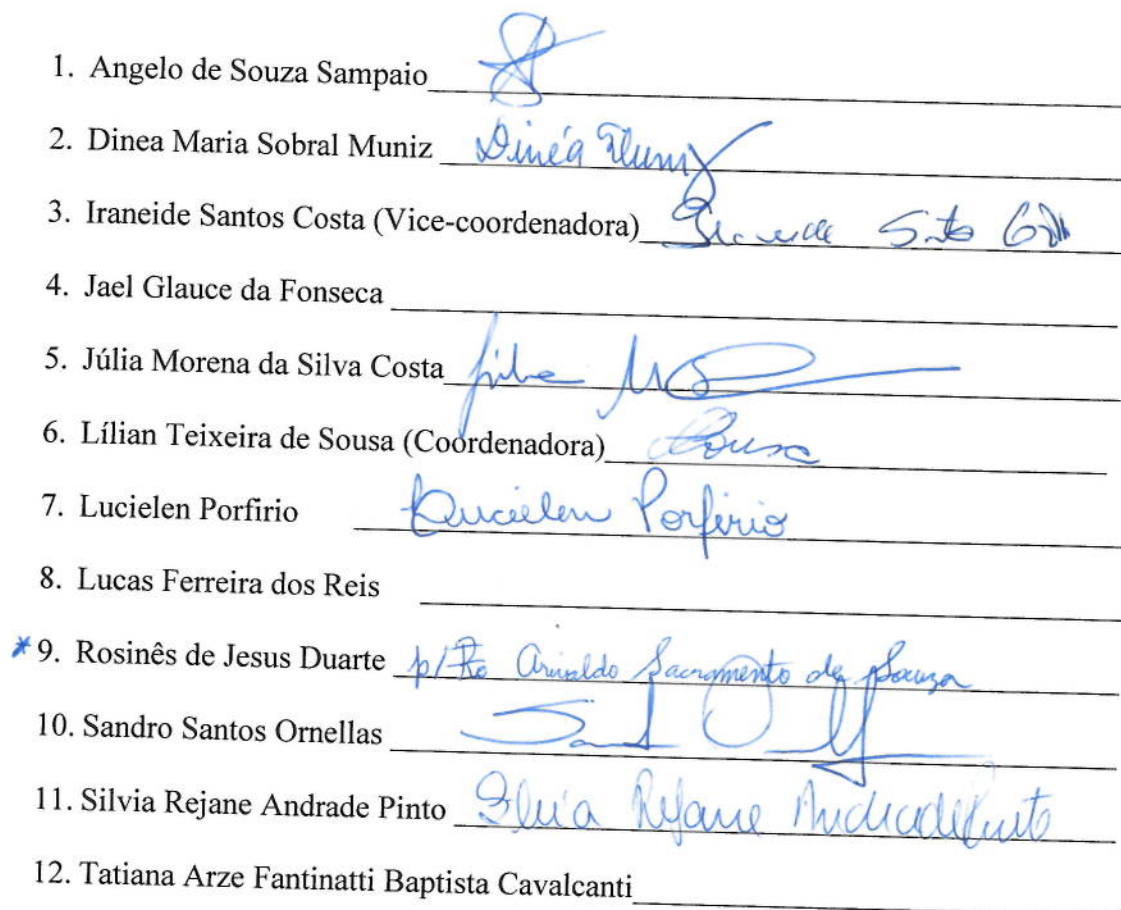 1. Angelo de Souza Sampaio
2. Dinea Maria Sobral Muniz Dinéa Muniz
3. Iraneide Santos Costa (Vice-coordenadora)
4. Jael Glauce da Fonseca
5. Júlia Morena da Silva Costa
6. Lílian Teixeira de Sousa (Coordenadora) Sousa
7. Lucielen Porfirio Lucielen Porfirio
8. Lucas Ferreira dos Reis
*9. Rosinês de Jesus Duarte Arivaldo Sacramento de Souza
10. Sandro Santos Ornellas
11. Silvia Rejane Andrade Pinto Silvia Rejane Andrade Pinto
12. Tatiana Arze Fantinatti Baptista Cavalcanti